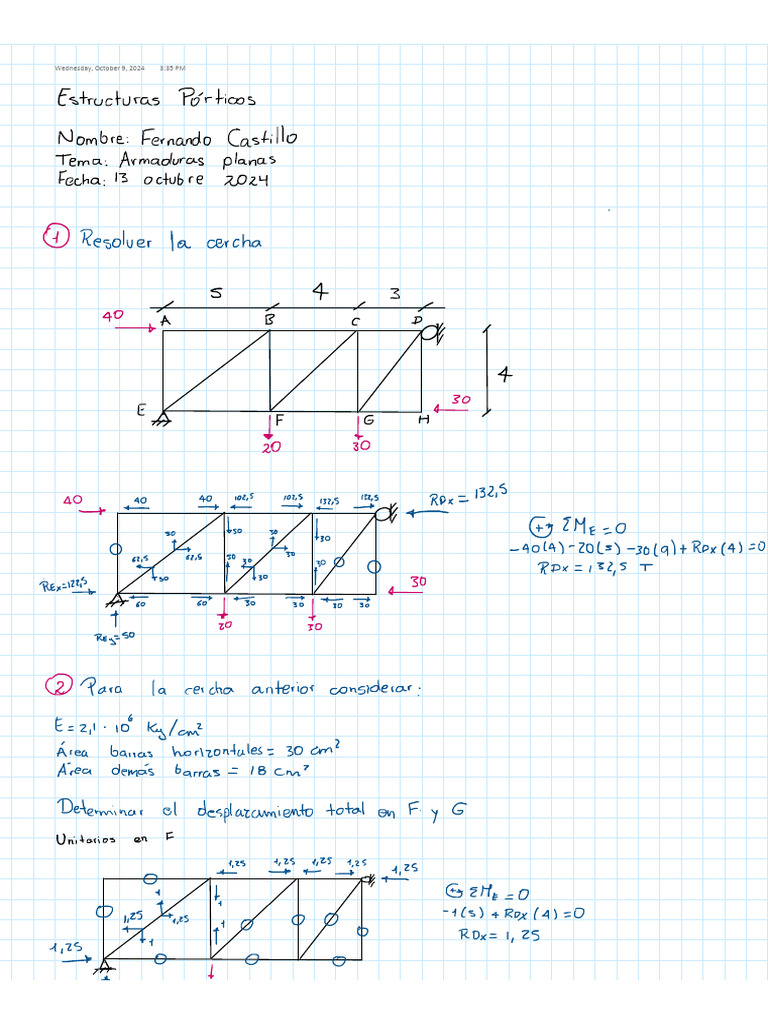 Wednesday, October 9, 2024 3:35 PM
Estructuras Pórticos
Nombre: Fernando Castillo
Tema: Armaduras planas
Fecha: 13 octubre 2024
1 Resolver la cercha
5 4 3
40 A B C D
4
E F G H 30
20 30
40 40 40 102,5 102,5 132,5 132,5 RDx = 132,5
50 50 30 30
62,5 62,5 50 50 30 30 30 30
REx=122,5 60 60 30 30 30 30 30
20 30
REy=50
+ ΣME = 0
-40(4) -20(5) -30(9) + RDx(4) = 0
RDx = 132,5 T
2 Para la cercha anterior considerar:
E = 2,1 · 10⁶ Kg/cm²
Área barras horizontales = 30 cm²
Área demás barras = 18 cm²
Determinar el desplazamiento total en F y G
Unitarios en F
1,25 1,25 1,25 1,25 1,25
1 1
1,25 1,25 1 1
1,25
+ ΣME = 0
-1(5) + RDx(4) = 0
RDx = 1,25